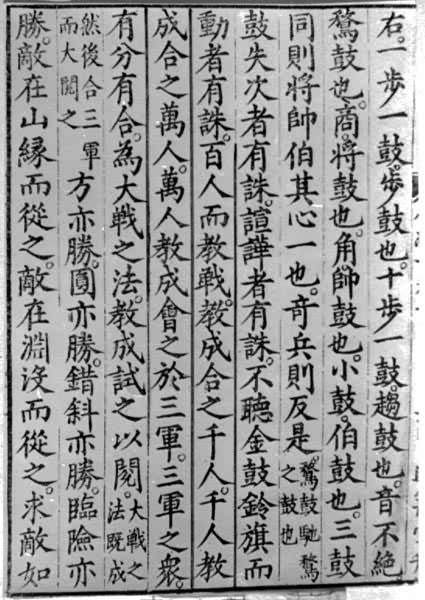 右。一步一鼓。步鼓也。十步一鼓。趨鼓也。音不絕。
騖鼓也。商。將鼓也。角。帥鼓也。小鼓。伯鼓也。三鼓
同則將帥伯其心一也。竒兵則反是。騖鼓馳騖之鼓也
鼓失次者有誅。諠譁者有誅。不聽金鼓鈴旗而
動者有誅。百人而教戰。教成合之千人。千人教
成合之萬人。萬人教成會之於三軍。三軍之衆。
有分有合。為大戰之法。教成試之以閱。大戰之法既成
然後合三軍而大閱之 方亦勝。圓亦勝。錯斜亦勝。臨險亦
勝。敵在山緣而從之。敵在淵沒而從之。求敵如